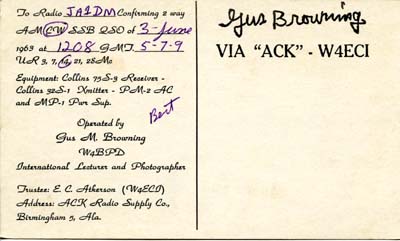 To Radio JA1DM Confirming 2 way
AM CW SSB QSO of 3-June
1963 at 1208 GMT. 5-7-9
UR 3, 7, 14, 21, 28Mc
Equipment: Collins 75S-3 Receiver -
Collins 32S-1 Xmitter - PM-2 AC
and MP-1 Pwr Sup.
Bert
Operated by
Gus M. Browning
W4BPD
International Lecturer and Photographer
Trustee: E. C. Atkerson (W4ECI)
Address: ACK Radio Supply Co.,
Birmingham 5, Ala.
Gus Browning
VIA "ACK" - W4ECI